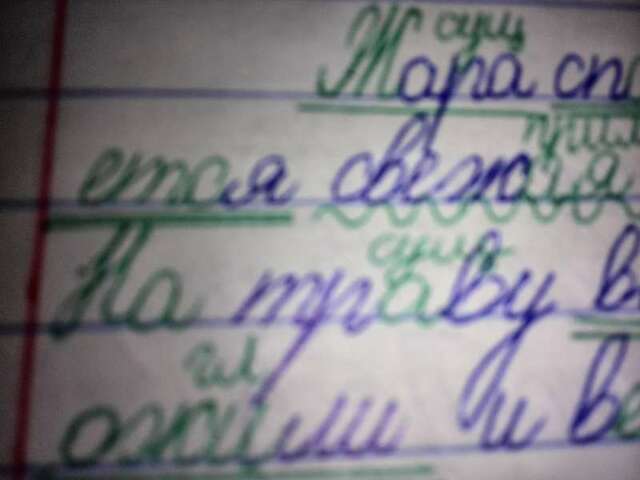 сущ
Жара спа
прил
ется свежая
сущ
На траву в
гл
ожили и ве